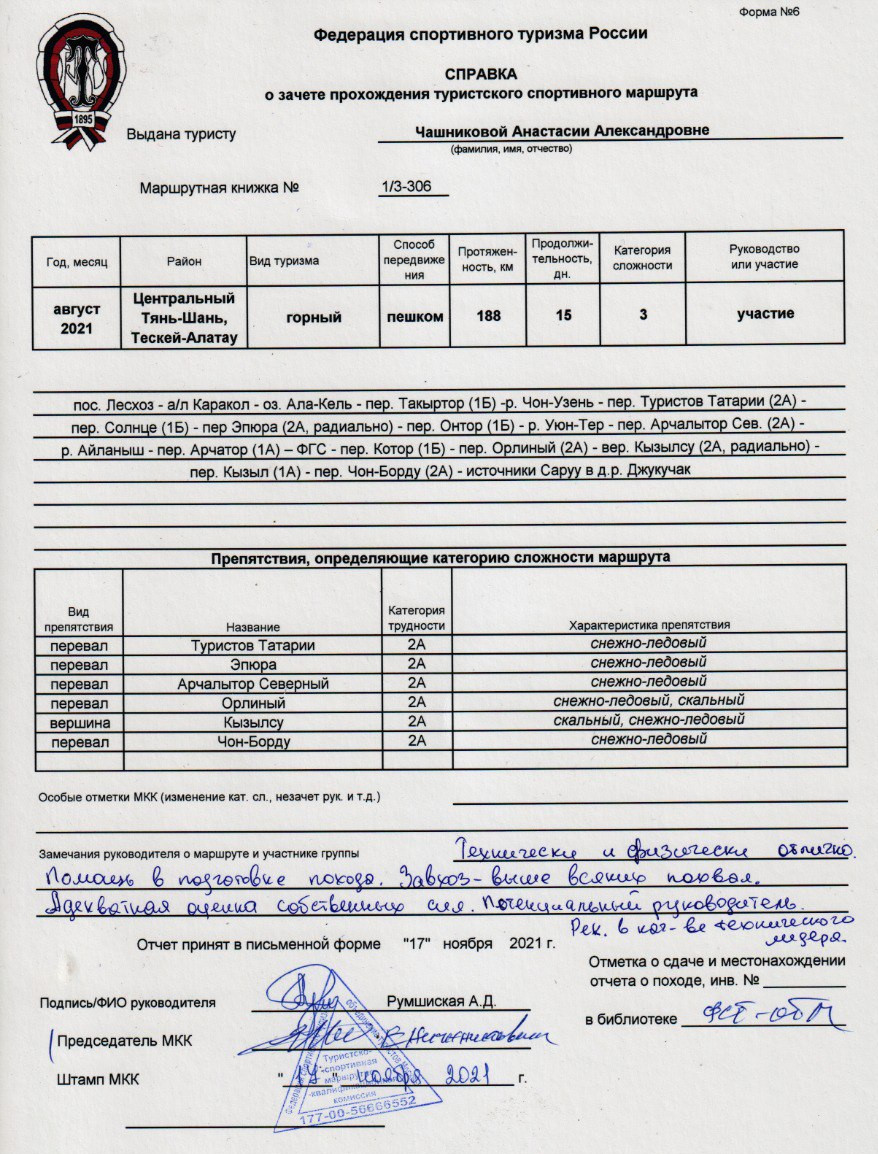 Форма №6
Федерация спортивного туризма России
СПРАВКА
о зачете прохождения туристского спортивного маршрута
1895
Выдана туристу Чашниковой Анастасии Александровне
(фамилия, имя, отчество)
Маршрутная книжка № 1/3-306
Год, месяц Район Вид туризма Способ передвиже ния Протяжен- ность, км Продолжи- тельность, дн. Категория сложности Руководство или участие
август 2021 Центральный Тянь-Шань, Тескей-Алатау горный пешком 188 15 3 участие
пос. Лесхоз - а/л Каракол - оз. Ала-Кель - пер. Такыртор (1Б) -р. Чон-Узень - пер. Туристов Татарии (2А) -
пер. Солнце (1Б) - пер Эпюра (2А, радиально) - пер. Онтор (1Б) - р. Уюн-Тер - пер. Арчалытор Сев. (2А) -
р. Айланыш - пер. Арчатор (1А) – ФГС - пер. Котор (1Б) - пер. Орлиный (2А) - вер. Кызылсу (2А, радиально) -
пер. Кызыл (1А) - пер. Чон-Борду (2А) - источники Саруу в д.р. Джукучак
Препятствия, определяющие категорию сложности маршрута
Вид препятствия Название Категория трудности Характеристика препятствия
перевал Туристов Татарии 2А снежно-ледовый
перевал Эпюра 2А снежно-ледовый
перевал Арчалытор Северный 2А снежно-ледовый
перевал Орлиный 2А снежно-ледовый, скальный
вершина Кызылсу 2А скальный, снежно-ледовый
перевал Чон-Борду 2А снежно-ледовый
Особые отметки МКК (изменение кат. сл., незачет рук. и т.д.)
Замечания руководителя о маршруте и участнике группы Технически и физически отлично.
Помощь в подготовке похода. Завхоз - выше всяких похвал.
Адекватная оценка собственных сил. Потенциальный руководитель.
Рек. в кач-ве технического
лидера.
Отчет принят в письменной форме "17" ноября 2021 г.
Отметка о сдаче и местонахождении
отчета о походе, инв. №
Подпись/ФИО руководителя Румшиская А.Д.
в библиотеке ФСТ-ОТМ
Председатель МКК
Штамп МКК "17" ноября 2021 г.
Туристско-
-спортивная
маршрутно-
-квалификационная
комиссия
177-00-56666552